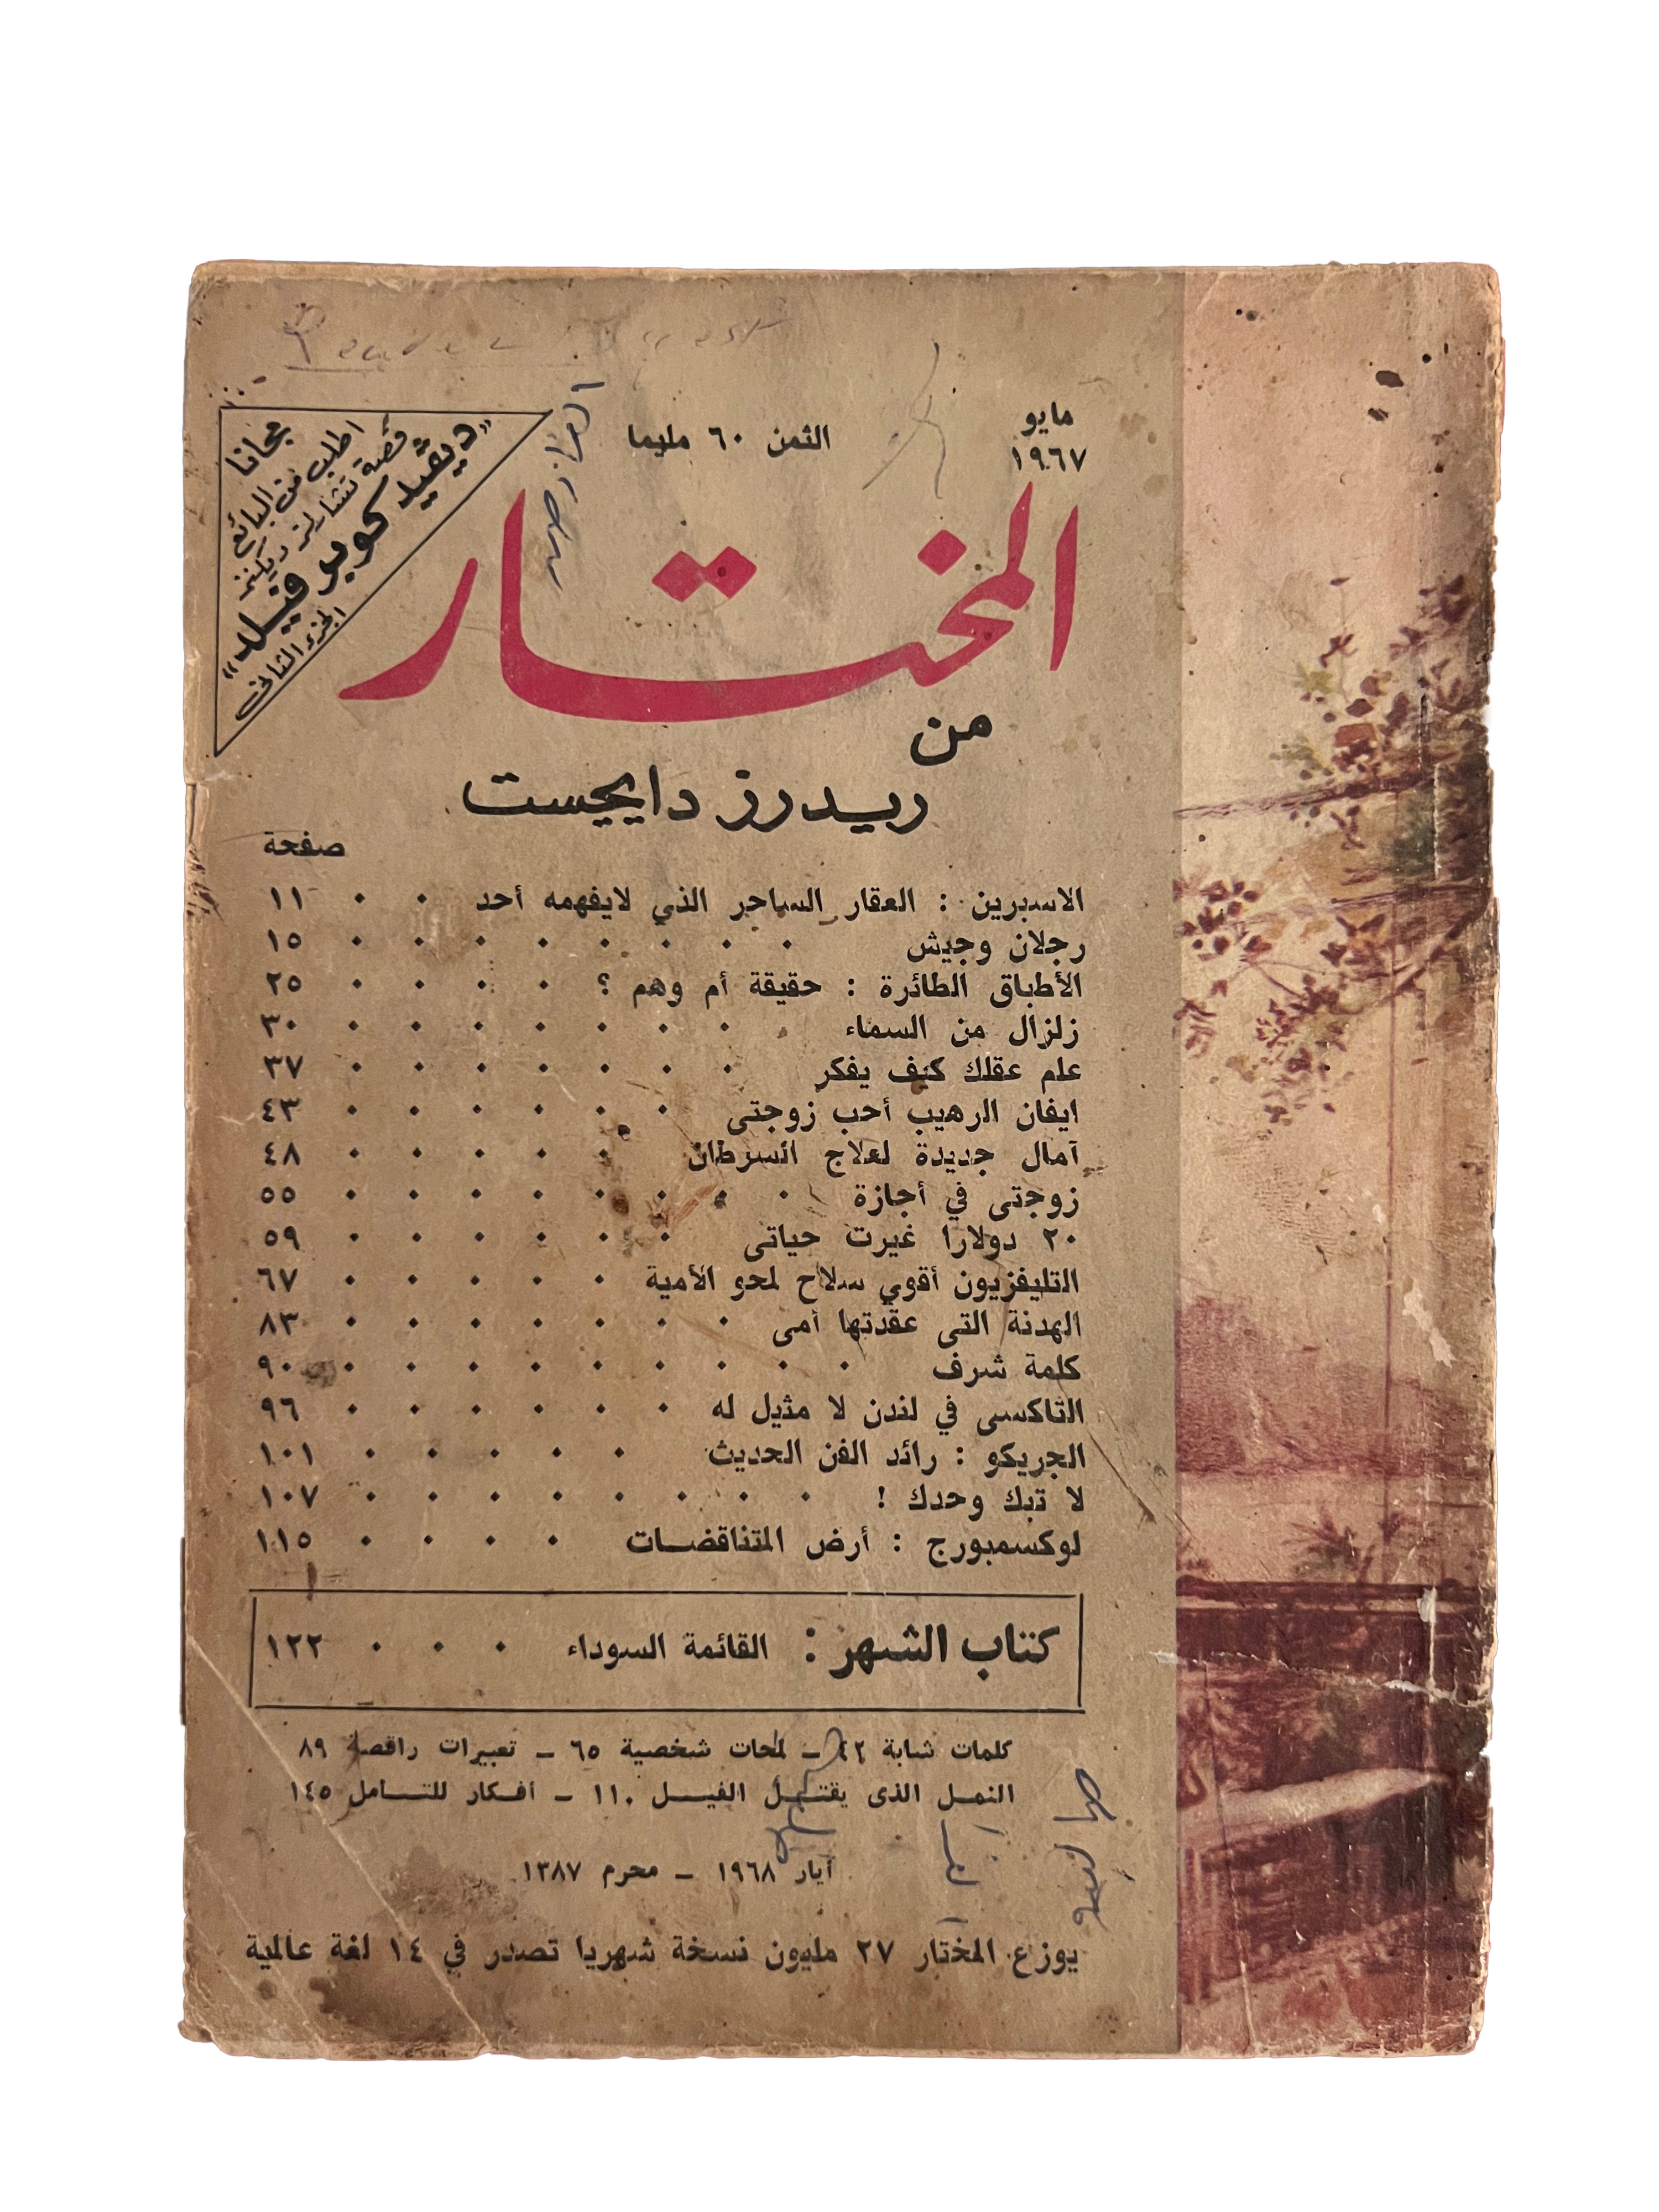 مايو
١٩٦٧
الثمن ٦٠ مليما
مجانا
اطلب من البائع
قصة تشارلز ديكنز
"ديڤيد كوبر فيلد"
الجزء الثانى
المختار
من
ريدرز دايجست
صفحة
الاسبرين : العقار الساحر الذي لايفهمه أحد . . ١١
رجلان وجيش . . . . . . . . ١٥
الأطباق الطائرة : حقيقة أم وهم ؟ . . . . ٢٥
زلزال من السماء . . . . . . . . ٣٠
علم عقلك كيف يفكر . . . . . . . ٣٧
ايفان الرهيب أحب زوجتى . . . . . . ٤٣
آمال جديدة لعلاج السرطان . . . . . ٤٨
زوجتى في أجازة . . . . . . . . ٥٥
٢٠ دولارا غيرت حياتى . . . . . . ٥٩
التليفزيون أقوي سلاح لمحو الأمية . . . . . ٦٧
الهدنة التى عقدتها أمى . . . . . . . ٨٣
كلمة شرف . . . . . . . . . ٩٠
التاكسى في لندن لا مثيل له . . . . . . ٩٦
الجريكو : رائد الفن الحديث . . . . . ١٠١
لا تبك وحدك ! . . . . . . . . ١٠٧
لوكسمبورج : أرض المتناقضات . . . . ١١٥
كتاب الشهر : القائمة السوداء . . . ١٢٢
كلمات شابة ٤٢ – لمحات شخصية ٦٥ – تعبيرات راقصة ٨٩
النمل الذى يقتل الفيل ١١٠ – أفكار للتأمل ١٤٥
آيار ١٩٦٨ – محرم ١٣٨٧
يوزع المختار ٢٧ مليون نسخة شهريا تصدر في ١٤ لغة عالمية